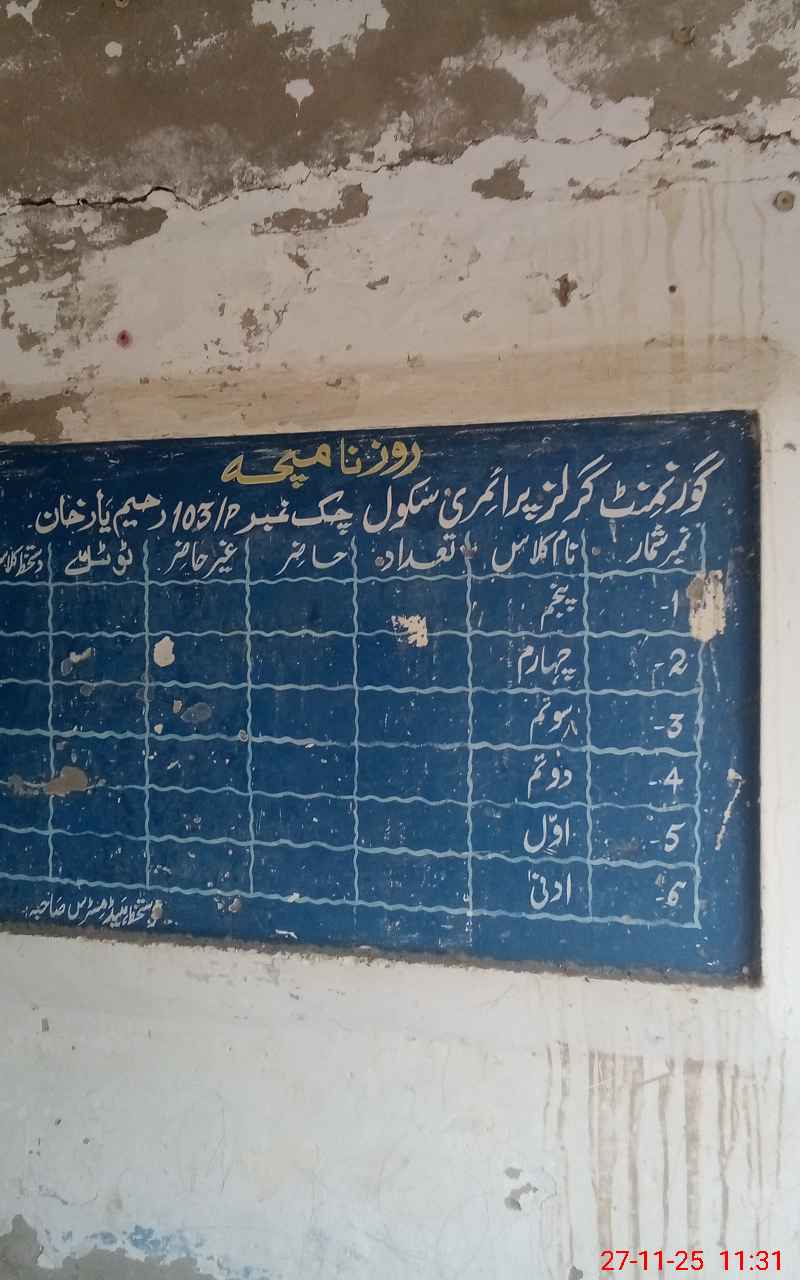 روزنامچہ
گورنمنٹ گرلز پرائمری سکول چک نمبر 103/P رحیم یار خان
نمبر شمار نام کلاس تعداد حاضر غیر حاضر ٹوٹل دستخط کلاس
1- پنجم
2- چہارم
3- سوئم
4- دوئم
5- اوّل
6- ادنیٰ
دستخط ہیڈ مسٹرس صاحبہ
27-11-25 11:31